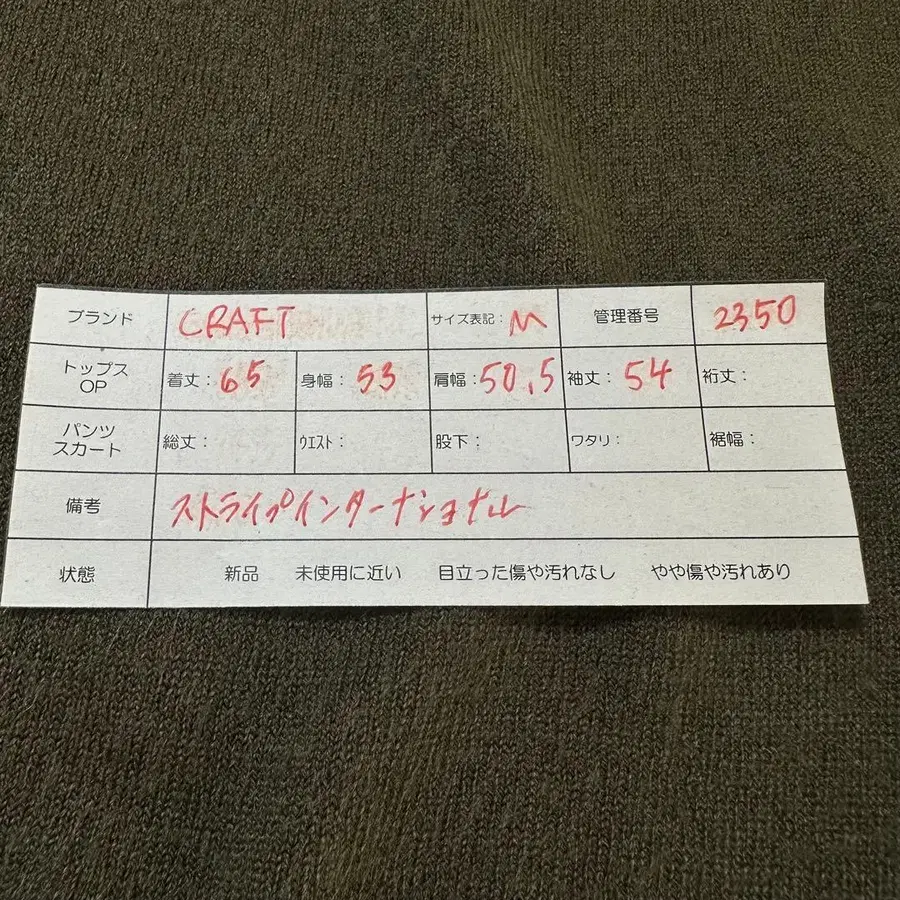 ブランド CRAFT サイズ表記: M 管理番号 2350
トップス OP 着丈: 65 身幅: 53 肩幅: 50.5 袖丈: 54 裄丈:
パンツ スカート 総丈: ウエスト: 股下: ワタリ: 裾幅:
備考 ストライプインターナショナル
状態 新品 未使用に近い 目立った傷や汚れなし やや傷や汚れあり